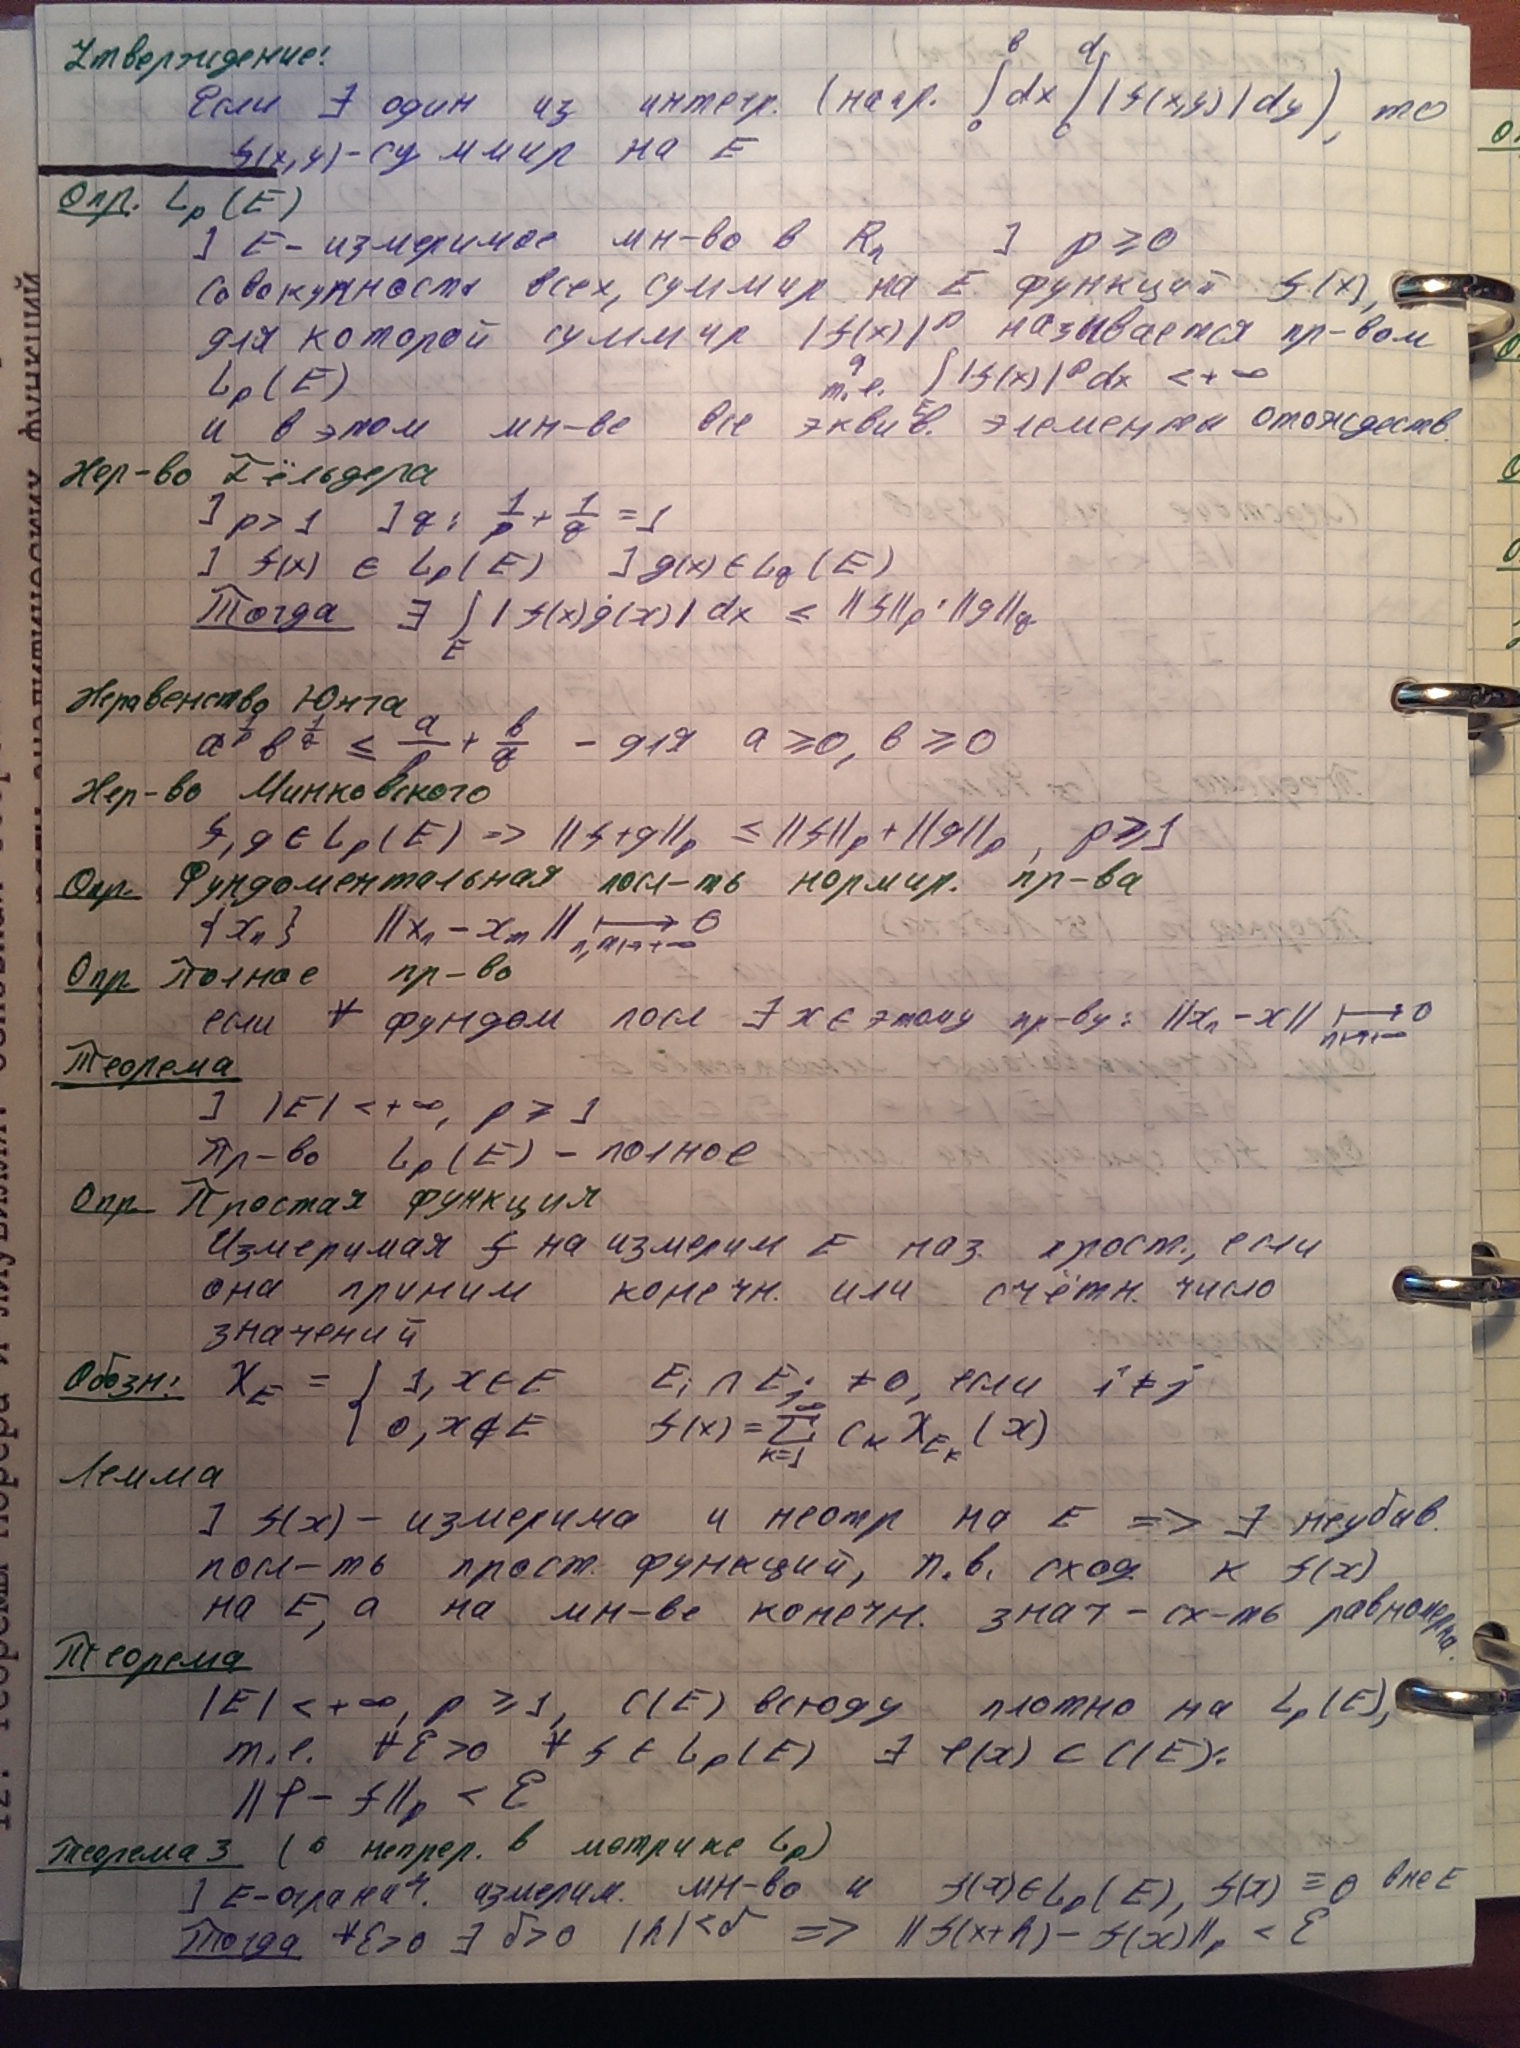 Утверждение:
Если ∃ один из интегр. (напр. ∫ₐᵇ dx ∫_c^d |f(x,y)| dy), то
f(x,y)-суммир на E
Опр. L_p(E)
] E - измеримое мн-во в R_n ] p ≥ 0
совокупность всех, суммир на E функций f(x),
для которой суммир |f(x)|^p называется пр-вом
L_p(E) т.е. ∫_E |f(x)|^p dx < +∞
и в этом мн-ве все эквив. элементы отождеств.
Нер-во Гёльдера
] p > 1 ] q: 1/p + 1/q = 1
] f(x) ∈ L_p(E) ] g(x) ∈ L_q(E)
Тогда ∃ ∫_E |f(x)g(x)| dx ≤ ||f||_p · ||g||_q
Неравенство Юнга
a^{1/p} b^{1/q} ≤ a/p + b/q - для a ≥ 0, b ≥ 0
Нер-во Минковского
f, g ∈ L_p(E) => ||f+g||_p ≤ ||f||_p + ||g||_p, p ≥ 1
Опр. Фундоментальная посл-ть нормир. пр-ва
{x_n} ||x_n - x_m|| ⟼ 0 n,m→+∞
Опр Полное пр-во
если ∀ фундам посл ∃ x ∈ этому пр-ву: ||x_n - x|| ⟼ 0 n→+∞
Теорема
] |E| < +∞, p ≥ 1
Пр-во L_p(E) - полное
Опр. Простая функция
Измеримая f на измерим E наз. прост., если
она приним конечн. или счётн. число
значений
Обозн: χ_E = { 1, x ∈ E E_i ∩ E_j ≠ 0, если i ≠ j
0, x ∉ E f(x) = ∑_{k=1}^∞ c_k χ_{E_k}(x)
Лемма
] f(x) - измерима и неотр на E => ∃ неубыв.
посл-ть прост. функций, п.в. сход к f(x)
на E, а на мн-ве конечн. знач - сх-ть равномерна.
Теорема
|E| < +∞, p ≥ 1, C(E) всюду плотно на L_p(E),
т.е. ∀ε>0 ∀ f ∈ L_p(E) ∃ φ(x) ⊂ C(E):
||φ - f||_p < ε
Теорема 3 (о непрер. в метрике L_p)
] E-огранич. измерим. мн-во и f(x) ∈ L_p(E), f(x) ≡ 0 вне E
Тогда ∀ε>0 ∃ δ>0 |h|<δ => ||f(x+h) - f(x)||_p < ε